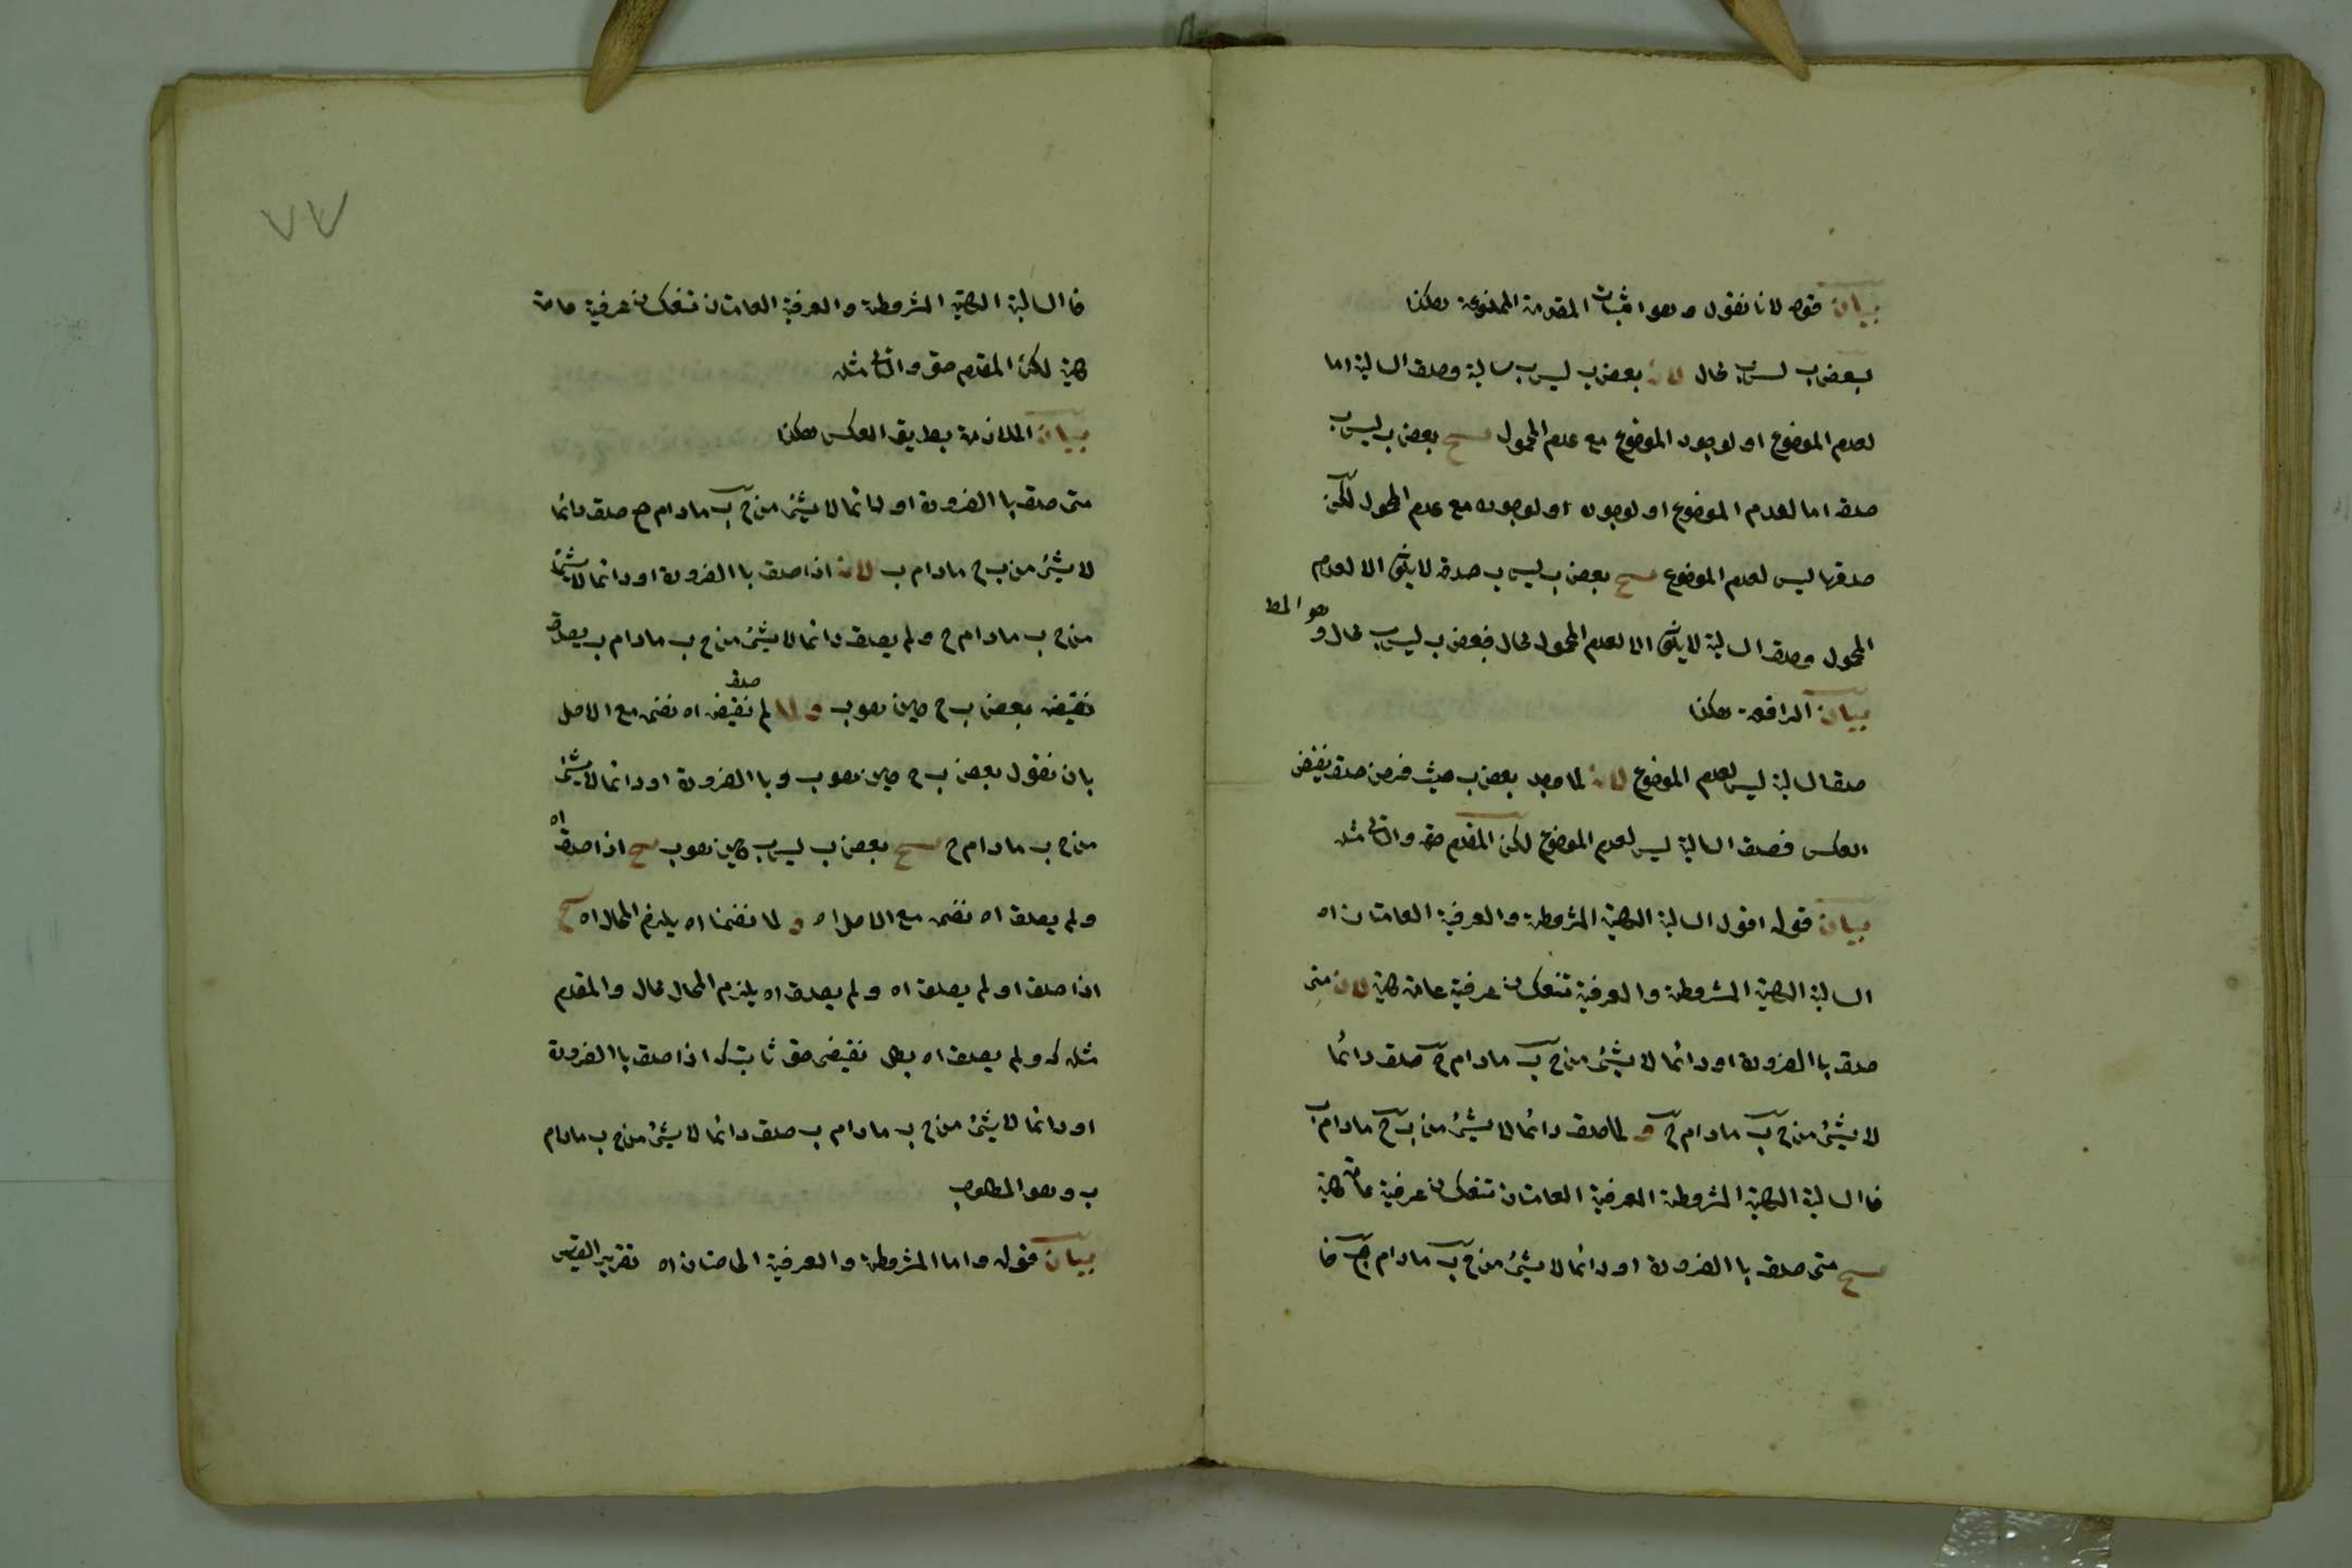 بيان قوله لانا نقول وهو اثبات المقدمة الممنوعة هكذا
بعض ب ليس ب محال لان بعض ب ليس ب سالبة وصدق السالبة اما
لعدم الموضوع او لوجود الموضوع مع عدم المحمول بعض ب ليس ب
صدقه اما لعدم الموضوع او لوجوده مع عدم المحمول لكن
صدقها ليس لعدم الموضوع بعض ب ليس ب صدقه لا يكون الا لعدم
المحمول وصدق السالبة لا يكون الا لعدم المحمول محال فبعض ب ليس ب محال وهو المط
بيان هكذا
صدق السالبة ليس لعدم الموضوع لانه لما وجد بعض ب حيث فرض صدق نقيض
العكس فصدق السالبة ليس لعدم الموضوع لكن المقدم حق والتالي مثله
بيان قوله اقول السالبة الكلية المشروطة والعرفية العامتان اه
السالبة الكلية المشروطة والعرفية تنعكسان عرفية عامة كلية لان متى
صدق باالضرورة او دائما لا شئ من ج ب مادام ج صدق دائما
لا شئ من ج ب مادام ج و لما صدق دائما لا شئ من ب ج مادام ب
فاالسالبة الكلية المشروطة العرفية العامتان تنعكسان عرفية عامة كلية
متى صدق باالضرورة او دائما لا شئ من ج ب مادام ج فا
٧٧
فاالسالبة الكلية المشروطة والعرفية العامتان تنعكسان عرفية عامة
كلية لكن المقدم حق والتالي مثله
بيان الملازمة بطريق العكس هكذا
متى صدق باالضرورة او دائما لا شئ من ج ب مادام ج صدق دائما
لا شئ من ب ج مادام ب لان اذا صدق باالضرورة او دائما لا شئ
من ج ب مادام ج ولم يصدق دائما لا شئ من ج ب مادام ب يصدق
نقيضه بعض ب ج حين هو ب و لما صدق نقيضه اه نضمه مع الاصل
بان نقول بعض ب ج حين هو ب وباالضرورة او دائما لا شئ
من ج ب مادام ج بعض ب ليس ب حين هو ب اذا صدق اه
ولم يصدق اه نضمه مع الاصل اه و لما نضمنا اه يلزم المحال اه
اذا صدق او لم يصدق اه ولم يصدق اه يلزم المحال محال والمقدم
مثله ولم يصدق اه نقيضه حق ثابت اذا صدق باالضرورة
او دائما لا شئ من ج ب مادام ب صدق دائما لا شئ من ج ب مادام
ب وهو المطلوب
بيان قوله واما المشروطة والعرفية الخاصتان اه تقرير القياس